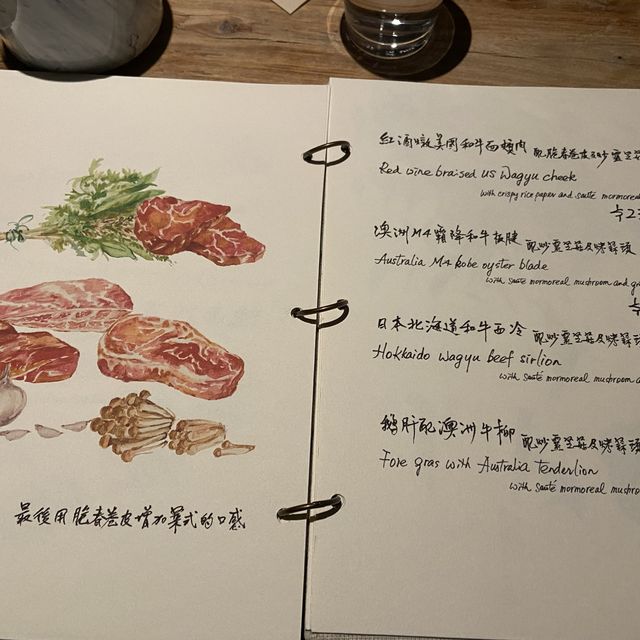 最後用脆春卷皮增加菜式的口感
紅酒燉美國和牛面頰肉 配脆春卷皮及炒靈芝菇
Red wine braised US Wagyu cheek
with crispy rice paper and sauté mormoreal
澳洲M4霜降和牛板腱 配炒靈芝菇及烤蒜頭
Australia M4 kobe oyster blade
with sauté normoreal mushroom and
日本北海道和牛西冷 配炒靈芝菇及烤蒜頭
Hokkaido Wagyu beef sirlion
with sauté normoreal mushroom
鵝肝配澳洲牛柳 配炒靈芝菇及烤蒜頭
Foie gras with Australia Tenderlion
with sauté mormoreal